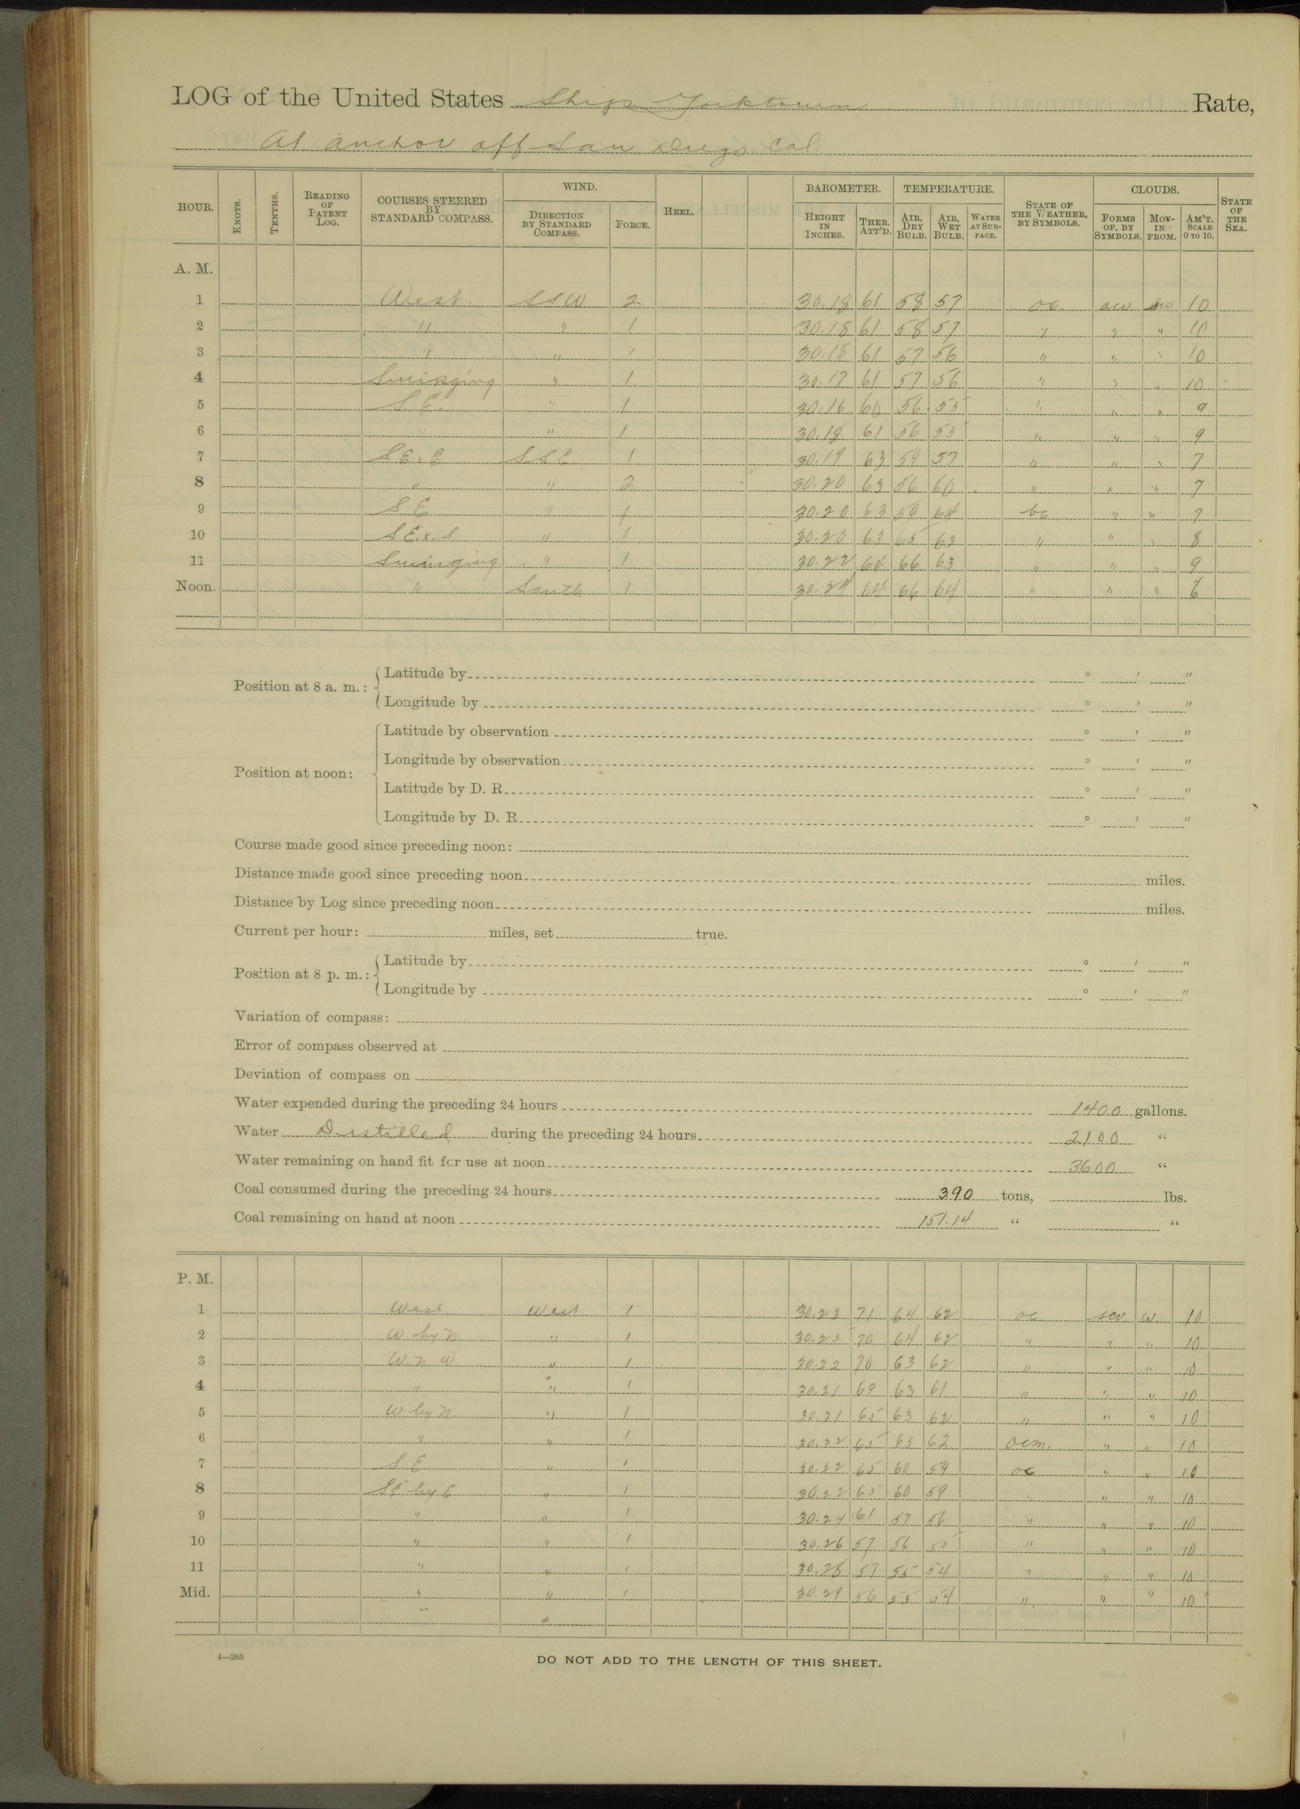 LOG of the United States Ship Yorktown Rate,
At anchor off San Diego Cal
HOUR. KNOTS. TENTHS. READING OF PATENT LOG. COURSES STEERED BY STANDARD COMPASS. WIND. DIRECTION BY STANDARD COMPASS. FORCE. HEEL. BAROMETER. HEIGHT IN INCHES. THER. ATT'D. TEMPERATURE. AIR, DRY BULB. AIR, WET BULB. WATER AT SURFACE. STATE OF THE WEATHER, BY SYMBOLS. CLOUDS. FORMS OF, BY SYMBOLS. MOVIN FROM. AM'T. SCALE 0 TO 10. STATE OF THE SEA.
A. M.
1 West SSW 2 30.18 61 58 57 oc 10
2 " " 1 30.18 61 58 57 " " " 10
3 " " 1 30.18 61 57 56 " " " 10
4 Swinging " 1 30.17 61 57 56 " " " 10
5 S E. " 1 30.16 60 56 55 " " " 9
6 " " 1 30.18 61 56 55 " " " 9
7 SE.E SSE 1 30.19 63 59 57 " " " 7
8 " " 2 30.20 63 56 60 " " " 7
9 S E " 1 30.20 63 59 64 bc " " 7
10 S E x S " 1 30.20 63 65 63 " " " 8
11 Swinging " 1 30.22 64 66 63 " " " 9
Noon. " South 1 30.24 64 66 64 " " "
Position at 8 a. m.: Latitude by ° ' "
Longitude by ° ' "
Position at noon: Latitude by observation ° ' "
Longitude by observation ° ' "
Latitude by D. R. ° ' "
Longitude by D. R. ° ' "
Course made good since preceding noon:
Distance made good since preceding noon miles.
Distance by Log since preceding noon miles.
Current per hour: miles, set true.
Position at 8 p. m.: Latitude by ° ' "
Longitude by ° ' "
Variation of compass:
Error of compass observed at
Deviation of compass on
Water expended during the preceding 24 hours 1400 gallons.
Water Distilled during the preceding 24 hours 2100 "
Water remaining on hand fit for use at noon 3600 "
Coal consumed during the preceding 24 hours 390 tons, lbs.
Coal remaining on hand at noon 151.14 " "
P. M.
1 West West 1 30.23 71 64 62 oc scu w. 10
2 W by N " 1 30.23 70 64 62 " " " 10
3 W N W " 1 30.22 70 63 62 " " " 10
4 " " 1 30.21 69 63 61 " " " 10
5 W by N " 1 30.21 65 63 62 " " " 10
6 " " 1 30.22 65 63 62 ocm. " " 10
7 S E " 1 30.22 65 60 59 oc " " 10
8 SE by E " 1 30.22 65 60 59 " " " 10
9 " " 1 30.24 61 57 56 " " " 10
10 " " 1 30.26 57 56 55 " " " 10
11 " " 1 30.28 57 55 54 " " " 10
Mid. " " 1 30.29 56 55 54 " " " 10
4—265
DO NOT ADD TO THE LENGTH OF THIS SHEET.